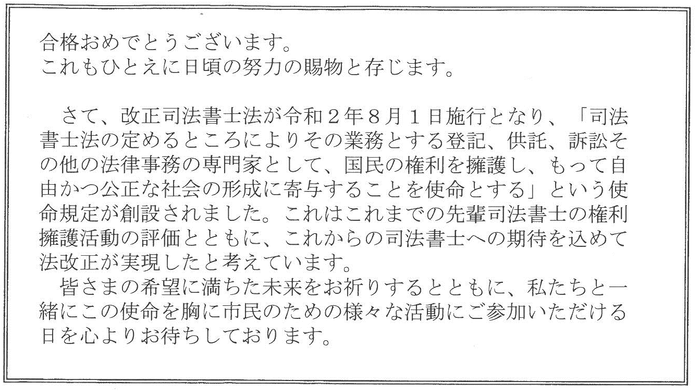 合格おめでとうございます。
これもひとえに日頃の努力の賜物と存じます。
さて、改正司法書士法が令和２年８月１日施行となり、「司法
書士法の定めるところによりその業務とする登記、供託、訴訟そ
の他の法律事務の専門家として、国民の権利を擁護し、もって自
由かつ公正な社会の形成に寄与することを使命とする」という使
命規定が創設されました。これはこれまでの先輩司法書士の権利
擁護活動の評価とともに、これからの司法書士への期待を込めて
法改正が実現したと考えています。
皆さまの希望に満ちた未来をお祈りするとともに、私たちと一
緒にこの使命を胸に市民のための様々な活動にご参加いただける
日を心よりお待ちしております。